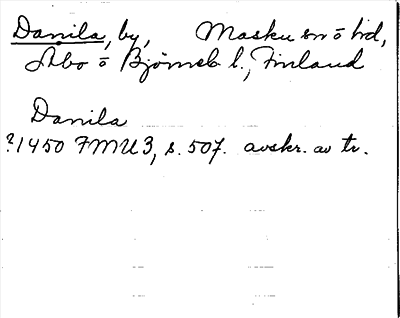 Danila, by, Masku sn ō hd,
Åbo ō Björneb l., Finland
Danila
?1450 FMU3, s. 507. avskr. av tr.